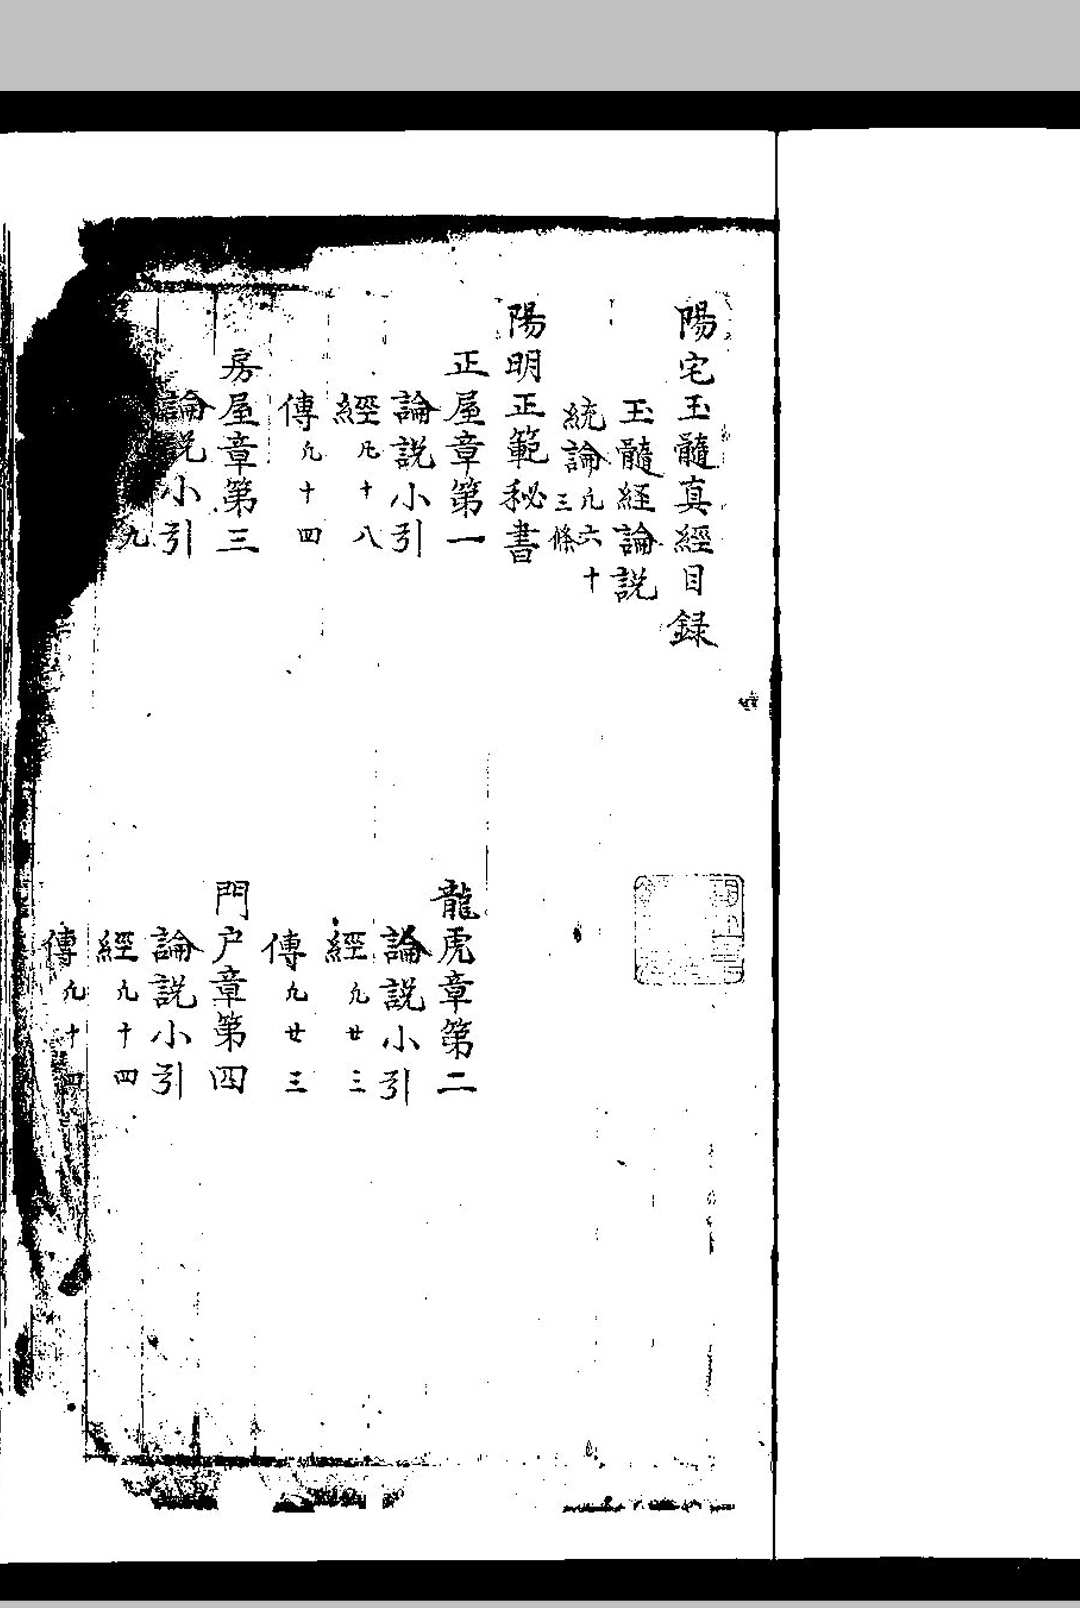 陽宅玉髓真經目録
玉髓経論説
統論凢六十三條
陽明正範秘書
正屋章第一
論說小引
經凢十八
傳凢十四
龍虎章第二
論說小引
經凢廿三
傳凢廿三
房屋章第三
論說小引
門户章第四
論說小引
經凢十四
傳凢十四